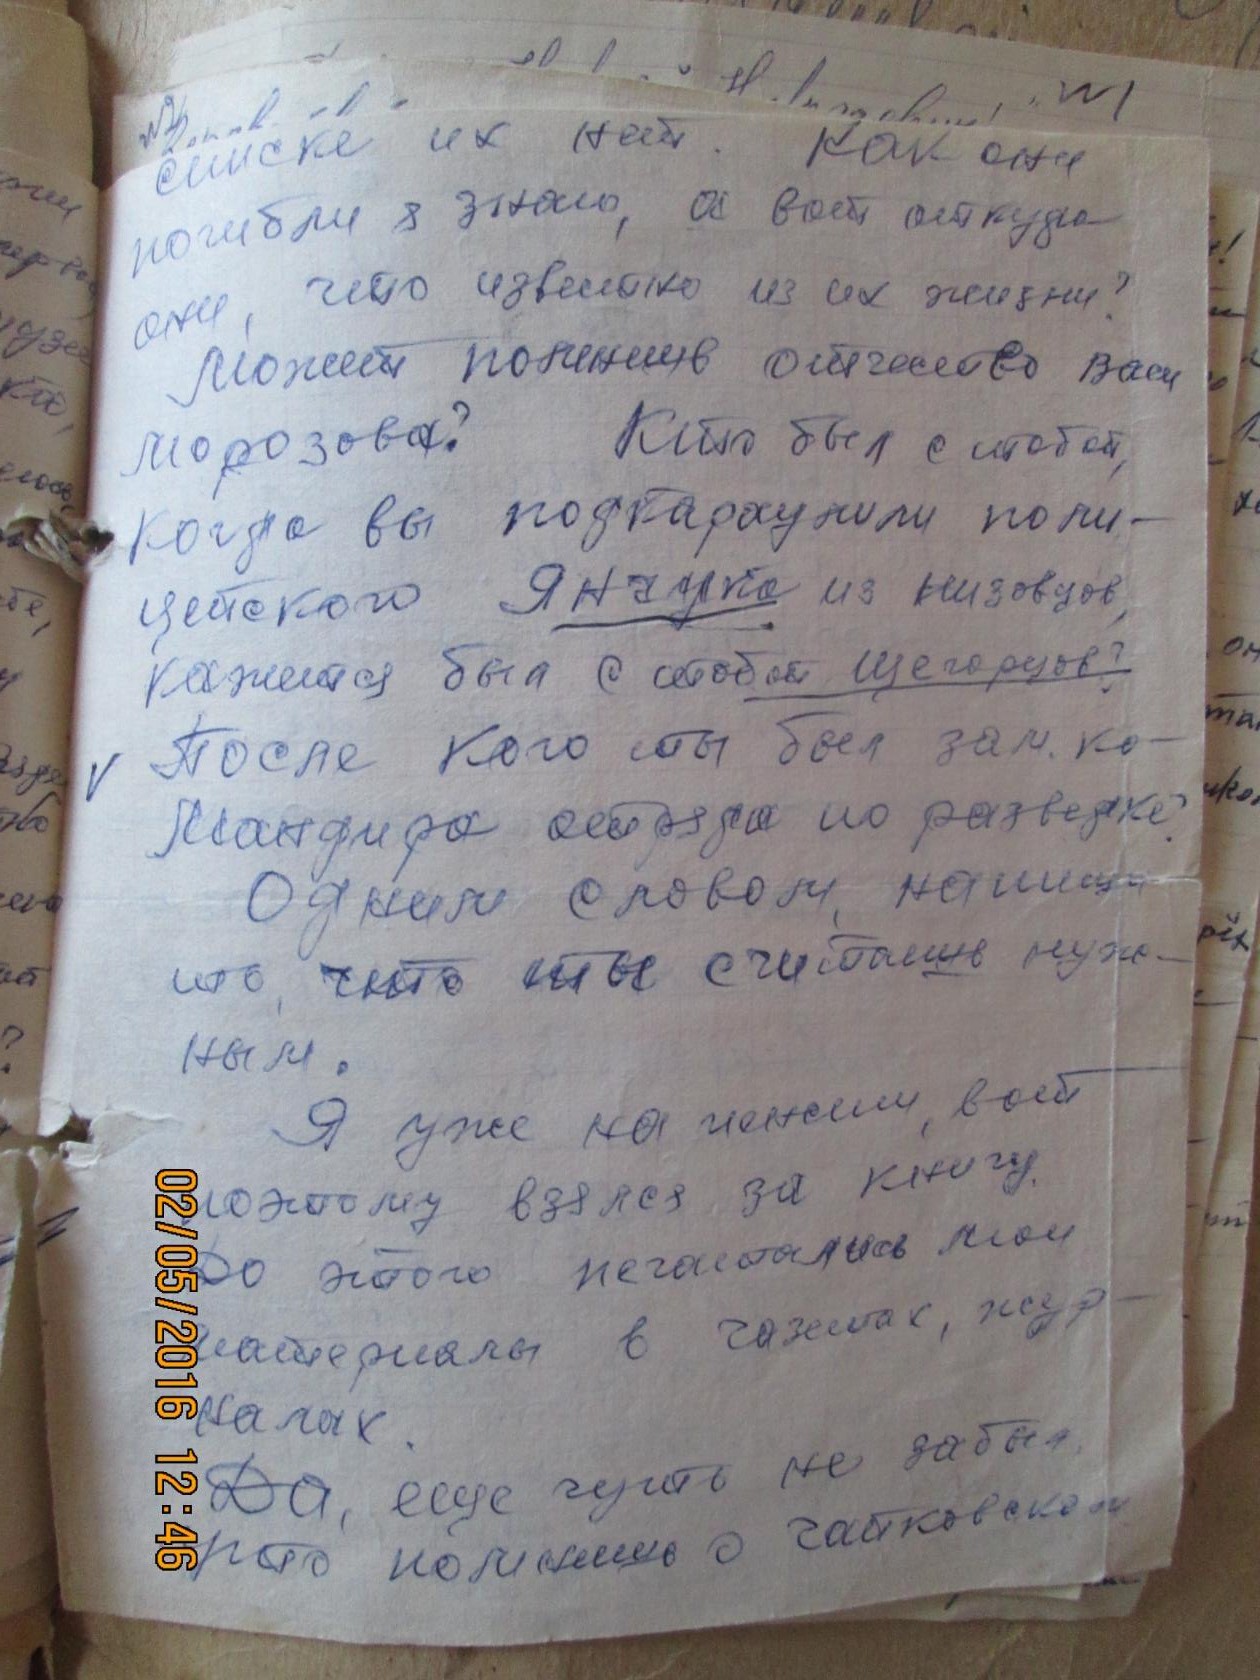 списке их нет. Как они
погибли я знаю, а вот откуда
они, что известно из их жизни?
Может помнишь отчество Васи
Морозова? Кто был с тобой,
когда вы подкараулили поли-
цейского Янчука из низовцов,
кажется был с тобой Щегорцов?
V После кого ты был зам. ко-
мандира отряда по разведке?
Одним словом, напиши
то, что ты считаешь нуж-
ным.
Я уже на пенсии, вот
поэтому взялся за книгу.
До этого печатались мои
материалы в газетах, жур-
налах.
Да, еще чуть не забыл.
Что помнишь о чапковском
02/05/2016 12:46